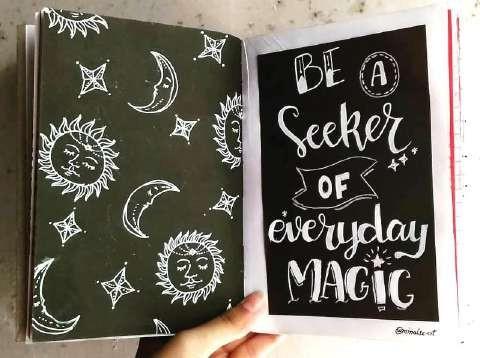 BE A
Seeker
OF
everyday
MAGIC